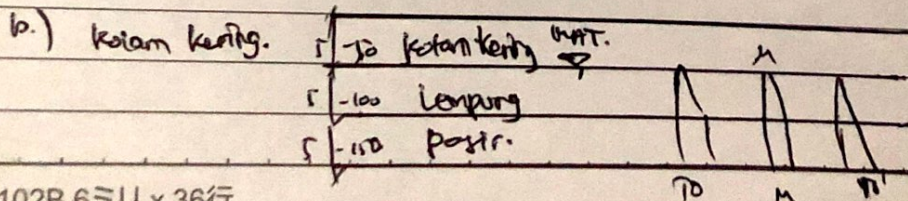 b.) kolam kering. 5 -50 kolam kering MAT.
μ
5 -100 lempung
5 -150 pasir.
μ
102B 6ミリ×36行